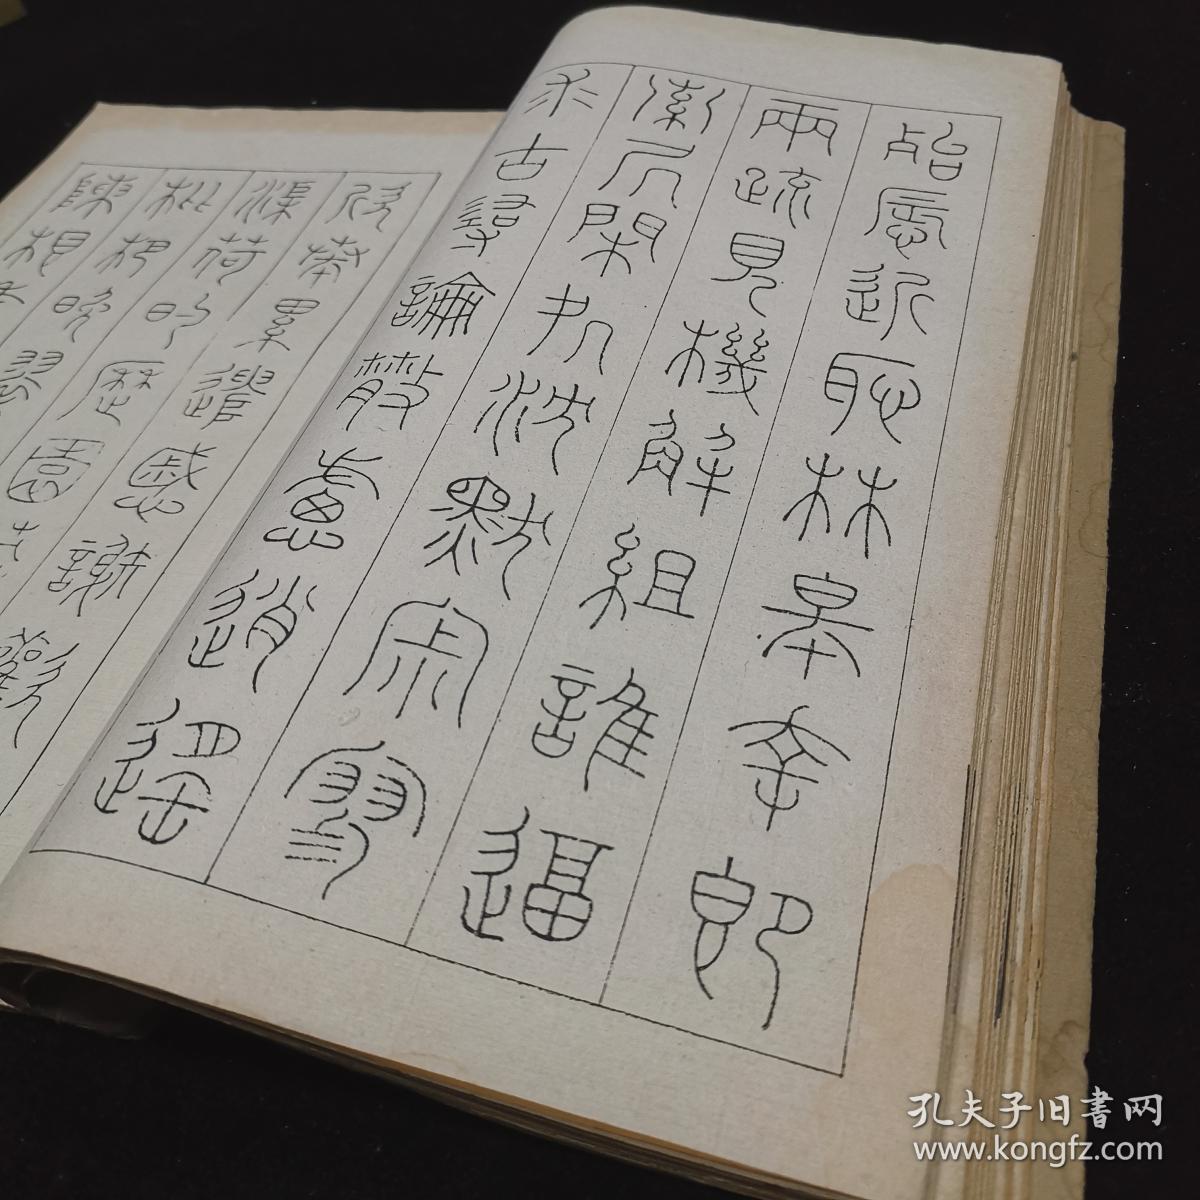 殆辱近恥林皋幸即
兩疏見機解組誰逼
索居閑処沈默寂寥
求古尋論散慮逍遙
欣奏累遣慼謝歡
渠荷的歷園
枇杷晚翠
陳根
孔夫子旧书网
www.kongfz.com